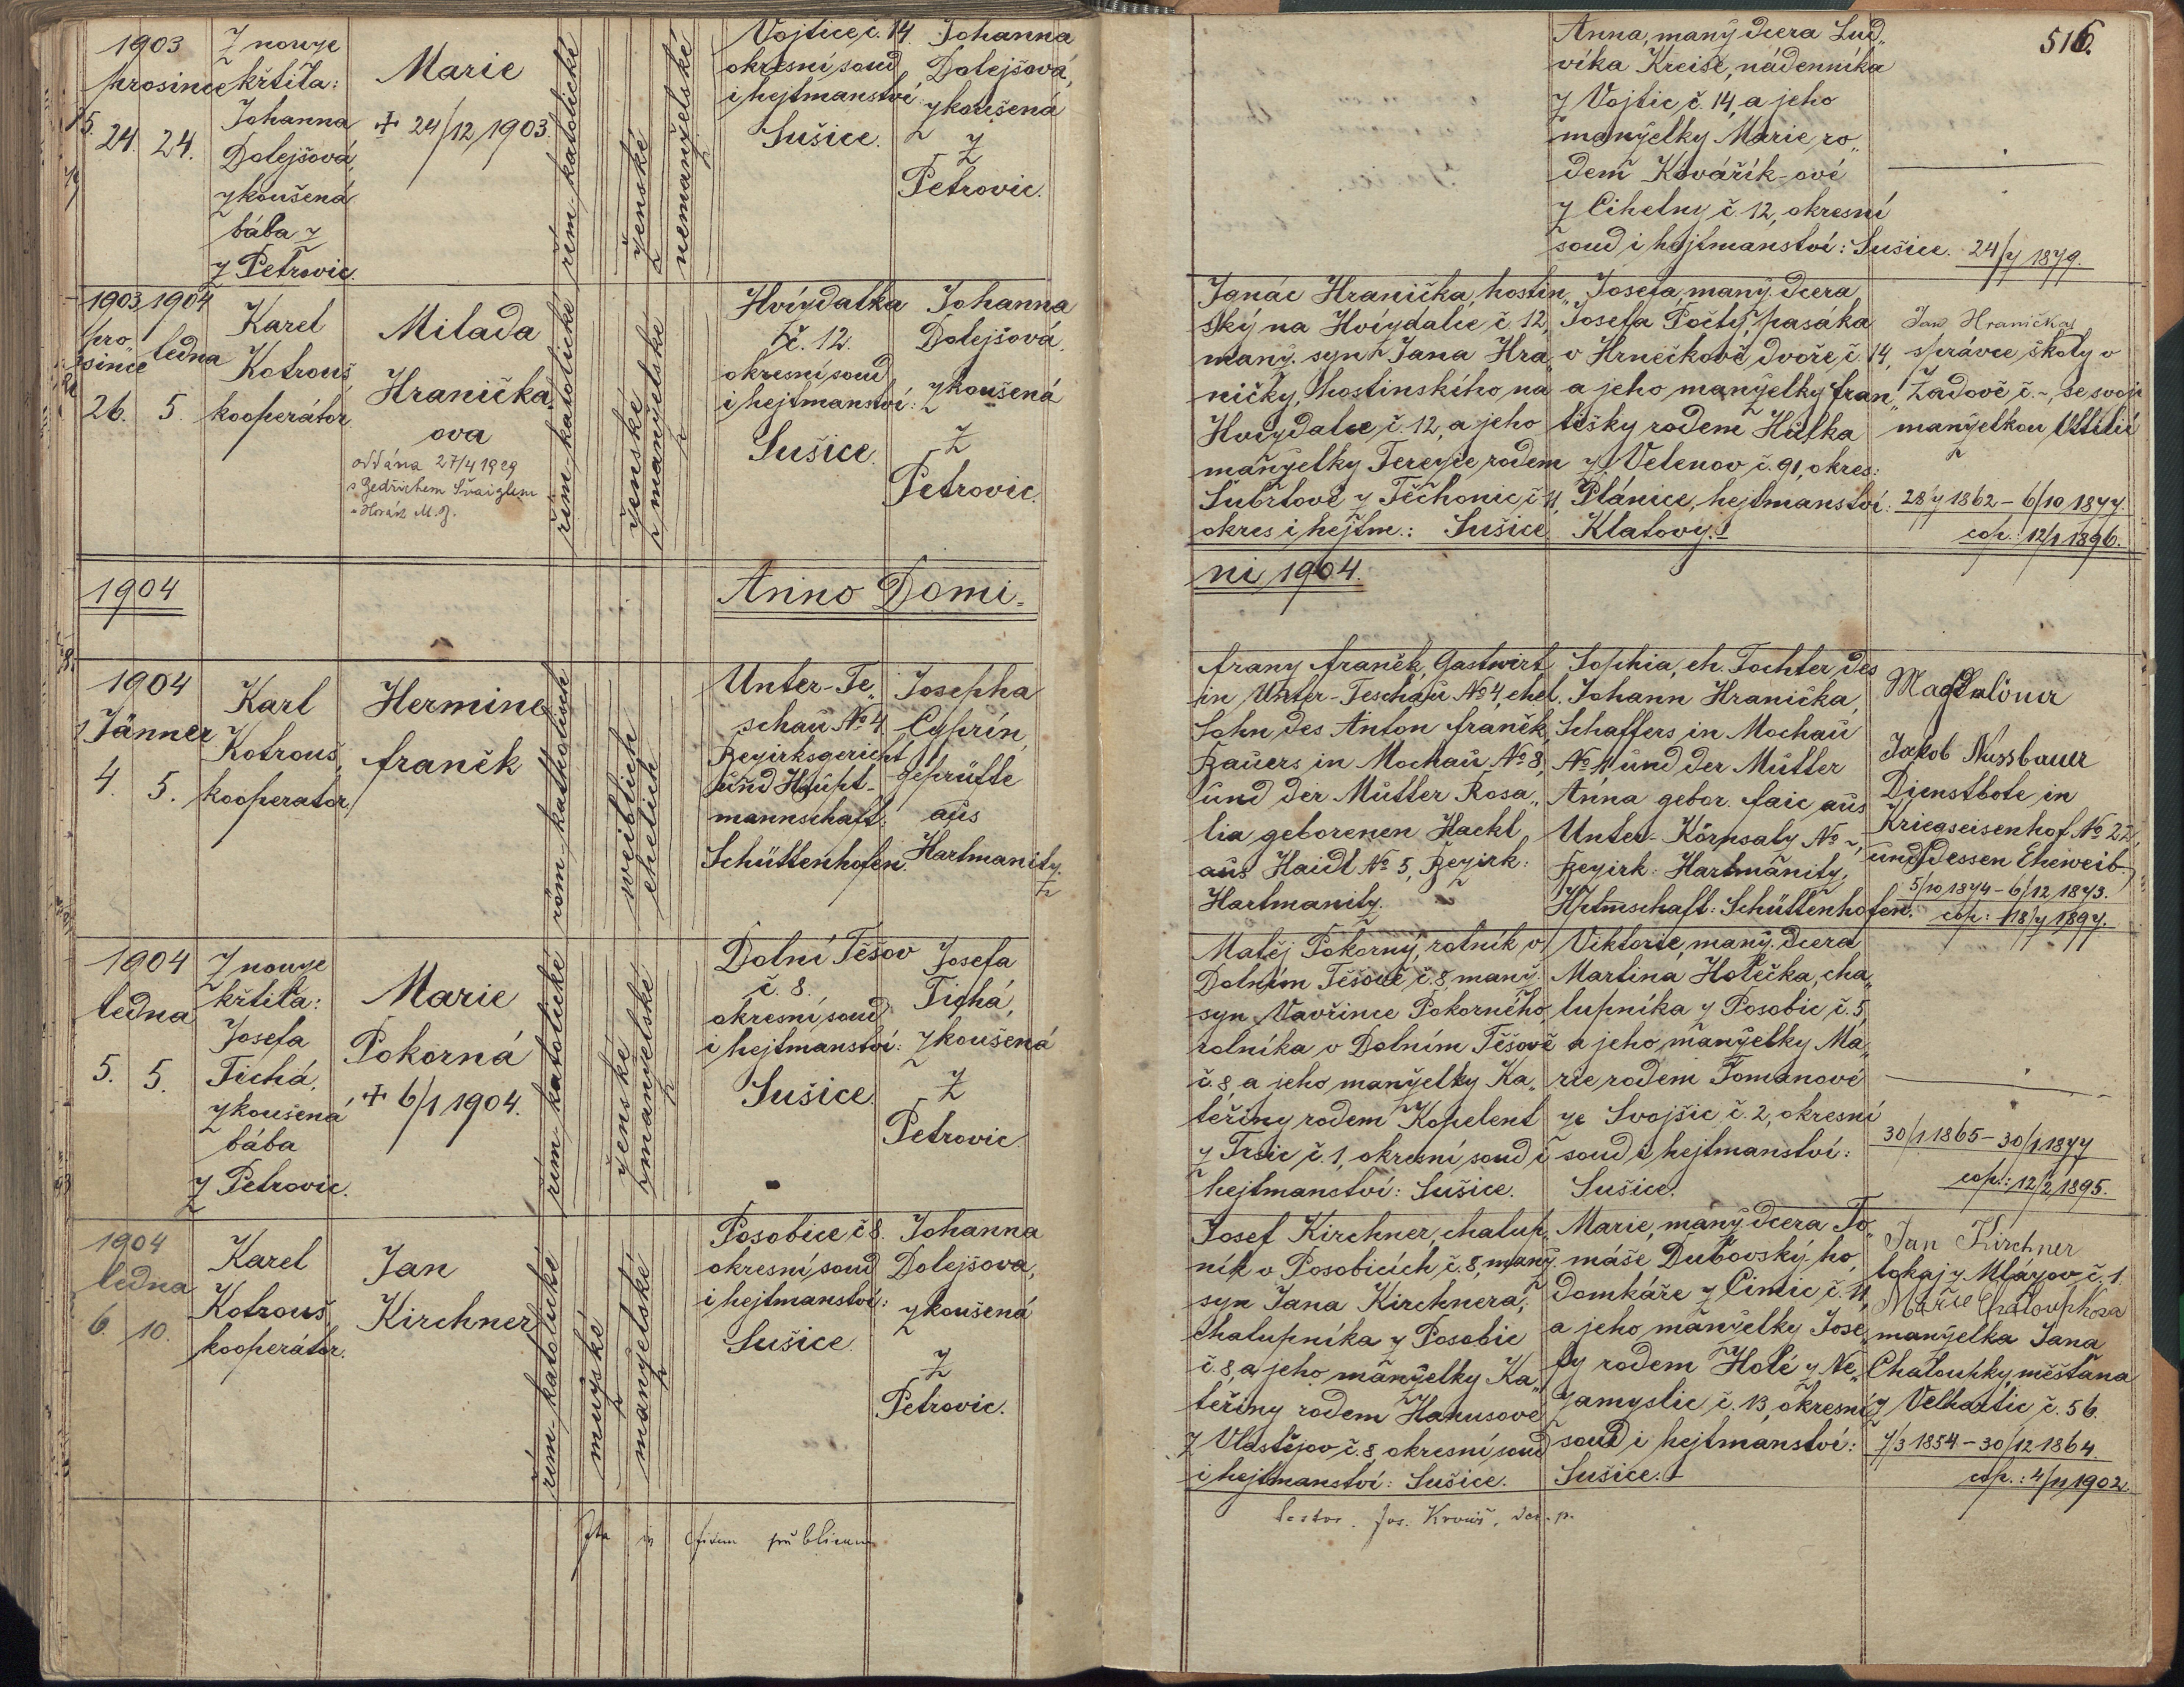 516.
1903
prosince
24. 24.
Z nouze
křtila:
Johanna
Dolejšová,
zkoušená
bába z
z Petrovic.
Marie
+ 24/12 1903.
řím. katolické
ženské
nemanželské
Vojtice č. 14.
okresní soud
i hejtmanství
Sušice.
Johanna
Dolejšová,
zkoušená
z
Petrovic.
Anna, manž. dcera Lud„
víka Kreise, nádenníka
z Vojtic, č. 14, a jeho
manželky Marie ro„
dem Kovářík-ové
z Cihelny č. 12, okresní
soud i hejtmanství: Sušice.
24/7 1879.
1903 1904
pro„
since ledna
26. 5.
Karel
Kotrouš
kooperátor
Milada
Hranička„
ova
oddána 27/4 1929
s Bedřichem Švaiglem
řím. katolické
ženské
manželské
Hvízdalka
č. 12.
okresní soud
i hejtmanství:
Sušice.
Johanna
Dolejšová,
zkoušená
z
Petrovic.
Ignác Hranička, hostin„
ský na Hvízdalce č. 12,
manž. syn Jana Hra„
ničky, hostinského na
Hvízdalce č. 12, a jeho
manželky Terezie rodem
Šubrtové z Těchonic č. 11,
okres i hejtm.: Sušice.
Josefa, manž. dcera
Josefa Počty, pasáka
v Hrnečkově dvoře, č. 14,
a jeho manželky Fran„
tišky rodem Hůlka
z Velenov č. 91, okres:
Plánice, hejtmanství:
Klatovy.
Jan Hranička,
správce školy v
Žadově č. -, se svojí
manželkou Ottilií
28/7 1862 – 6/10 1877.
cop.: 12/1 1896.
1904
Anno Domi-
ni 1904.
1904
Jänner
4. 5.
Karl
Kotrouš,
kooperator.
Hermine
Franěk
röm. katholisch
weiblich
ehelich
Unter-Te„
schau № 4
Bezirksgericht
und Haupt-
mannschaft:
Schüttenhofen.
Josepha
Cyprin,
geprüfte
aus
Hartmanitz.
Franz Franěk, Gastwirt
in Unter-Teschau № 4, ehel.
Sohn des Anton Franěk,
Bauers in Mochau № 8,
und der Mutter Rosa„
lia geborenen Hackl
aus Haidl № 5, Bezirk:
Hartmanitz.
Sophia, eh. Tochter des
Johann Hranička,
Schaffers in Mochau
№ 11 und der Mutter
Anna gebor. Faic aus
Unter-Körnsalz № -,
Bezirk: Hartmanitz,
Hptmschaft: Schüttenhofen.
Jakob Nussbauer
Dienstbote in
Kriegseisenhof № 22,
und dessen Eheweib.
5/10 1874 – 6/12 1873.
cop: 18/7 1897.
1904
ledna
5. 5.
Z nouze
křtila:
Josefa
Tichá,
zkoušená
bába
z Petrovic.
Marie
Pokorná
+ 6/1 1904.
řím. katolické
ženské
manželské
Dolní Těšov
č. 8.
okresní soud
i hejtmanství:
Sušice.
Josefa
Tichá,
zkoušená
z
Petrovic.
Matěj Pokorný, rolník v
Dolním Těšově č. 8, manž.
syn Vavřince Pokorného,
rolníka v Dolním Těšově
č. 8, a jeho manželky Ka„
teřiny rodem Kopelent
z Trsic č. 1, okresní soud i
hejtmanství: Sušice.
Viktorie, manž. dcera
Martina Holečka, cha„
lupníka z Posobic č. 5,
a jeho manželky Ma„
rie rodem Tomanové
ze Svojšic č. 2, okresní
soud i hejtmanství:
Sušice.
30/1 1865 – 30/1 1877
cop.: 12/2 1895.
1904
ledna
6. 10.
Karel
Kotrouš,
kooperátor.
Jan
Kirchner
řím. katolické
mužské
manželské
Posobice č 8.
okresní soud
i hejtmanství:
Sušice.
Johanna
Dolejšova,
zkoušená
z
Petrovic.
Josef Kirchner, chalup„
ník v Posobicích č. 8, manž.
syn Jana Kirchnera,
chalupníka z Posobic
č. 8, a jeho manželky Ka„
teřiny rodem Hanusové
z Vlastějov č. 8, okresní soud
i hejtmanství: Sušice.
Marie, manž. dcera To„
máše Dubovský-ho,
domkáře z Čimic č. 11,
a jeho manželky Jose„
fy rodem Holé z Ne„
zamyslic č. 13, okresní
soud i hejtmanství:
Sušice.
Jan Kirchner
lokaj z Mlázov č. 1.
Marie Chaloupková
manželka Jana
Chaloupky, měšťana
z Velhartic č. 56.
7/3 1854 – 30/12 1864.
cop.: 4/11 1902.
publicam
testor. Jos.